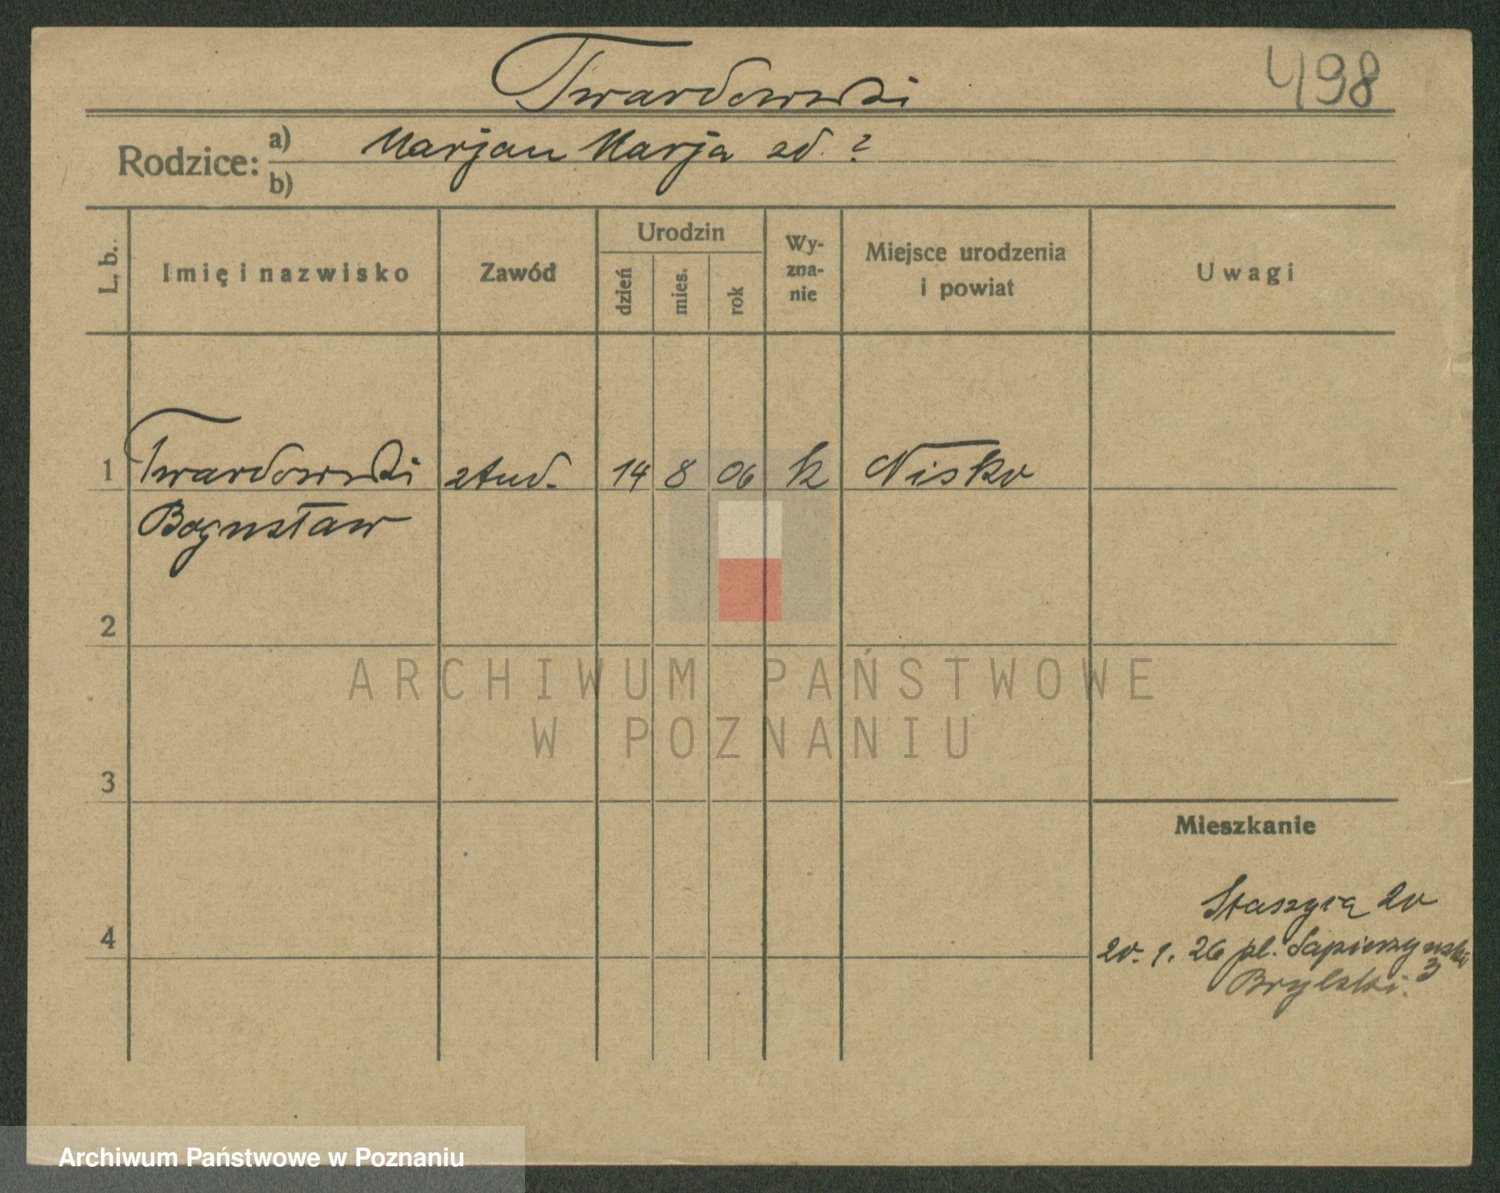 Twardowski
498
Rodzice:
a) Marjan Marja zd. ?
b)
L. b.
Imię i nazwisko
Zawód
Urodzin
dzień
mies.
rok
Wy-
zna-
nie
Miejsce urodzenia
i powiat
Uwagi
1 Twardowski stud. 14 8 06 k Nisko
Bogusław
2
3
4
Mieszkanie
Staszyca 20
20. 1. 26 pl. Sapieżyński
3
Brylski.
ARCHIWUM PAŃSTWOWE
W POZNANIU
Archiwum Państwowe w Poznaniu